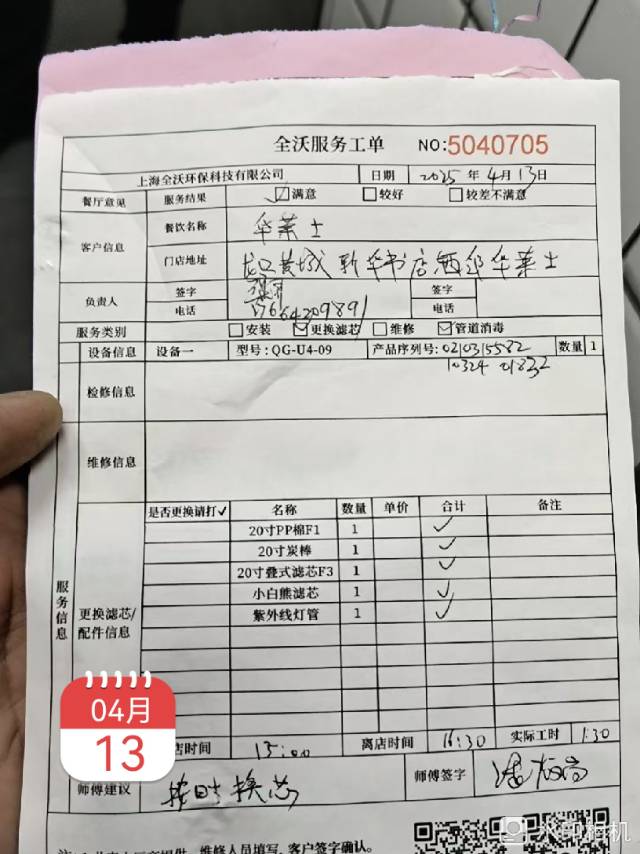 全沃服务工单 NO:5040705
上海全沃环保科技有限公司 日期 2025 年 4 月 13 日
餐厅意见 服务结果 ☑满意 □较好 □较差不满意
客户信息 餐饮名称 华莱士
门店地址 龙口黄城新华书店西邻华莱士
负责人 签字 签字
电话 17664209891 电话
服务类别 □安装 ☑更换滤芯 □维修 ☑管道消毒
设备信息 设备一 型号:QG-U4-09 产品序列号:0210315582 数量 1
10324 01832
检修信息
维修信息
是否更换请打✓ 名称 数量 单价 合计 备注
20寸PP棉F1 1 ✓
20寸炭棒 1 ✓
20寸叠式滤芯F3 1 ✓
小白熊滤芯 1 ✓
紫外线灯管 1 ✓
服务信息
更换滤芯/
配件信息
04月
13
店时间 15:00 离店时间 16:30 实际工时 1:30
师傅建议 按时换芯 师傅签字
维修人员填写,客户签字确认。
水印相机